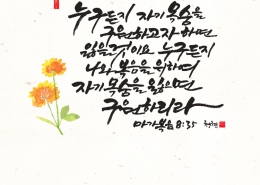 누구든지 자기 목숨을
구원하고자 하면
잃을 것이요 누구든지
나와 복음을 위하여
자기 목숨을 잃으면
구원하리라
마가복음 8:35